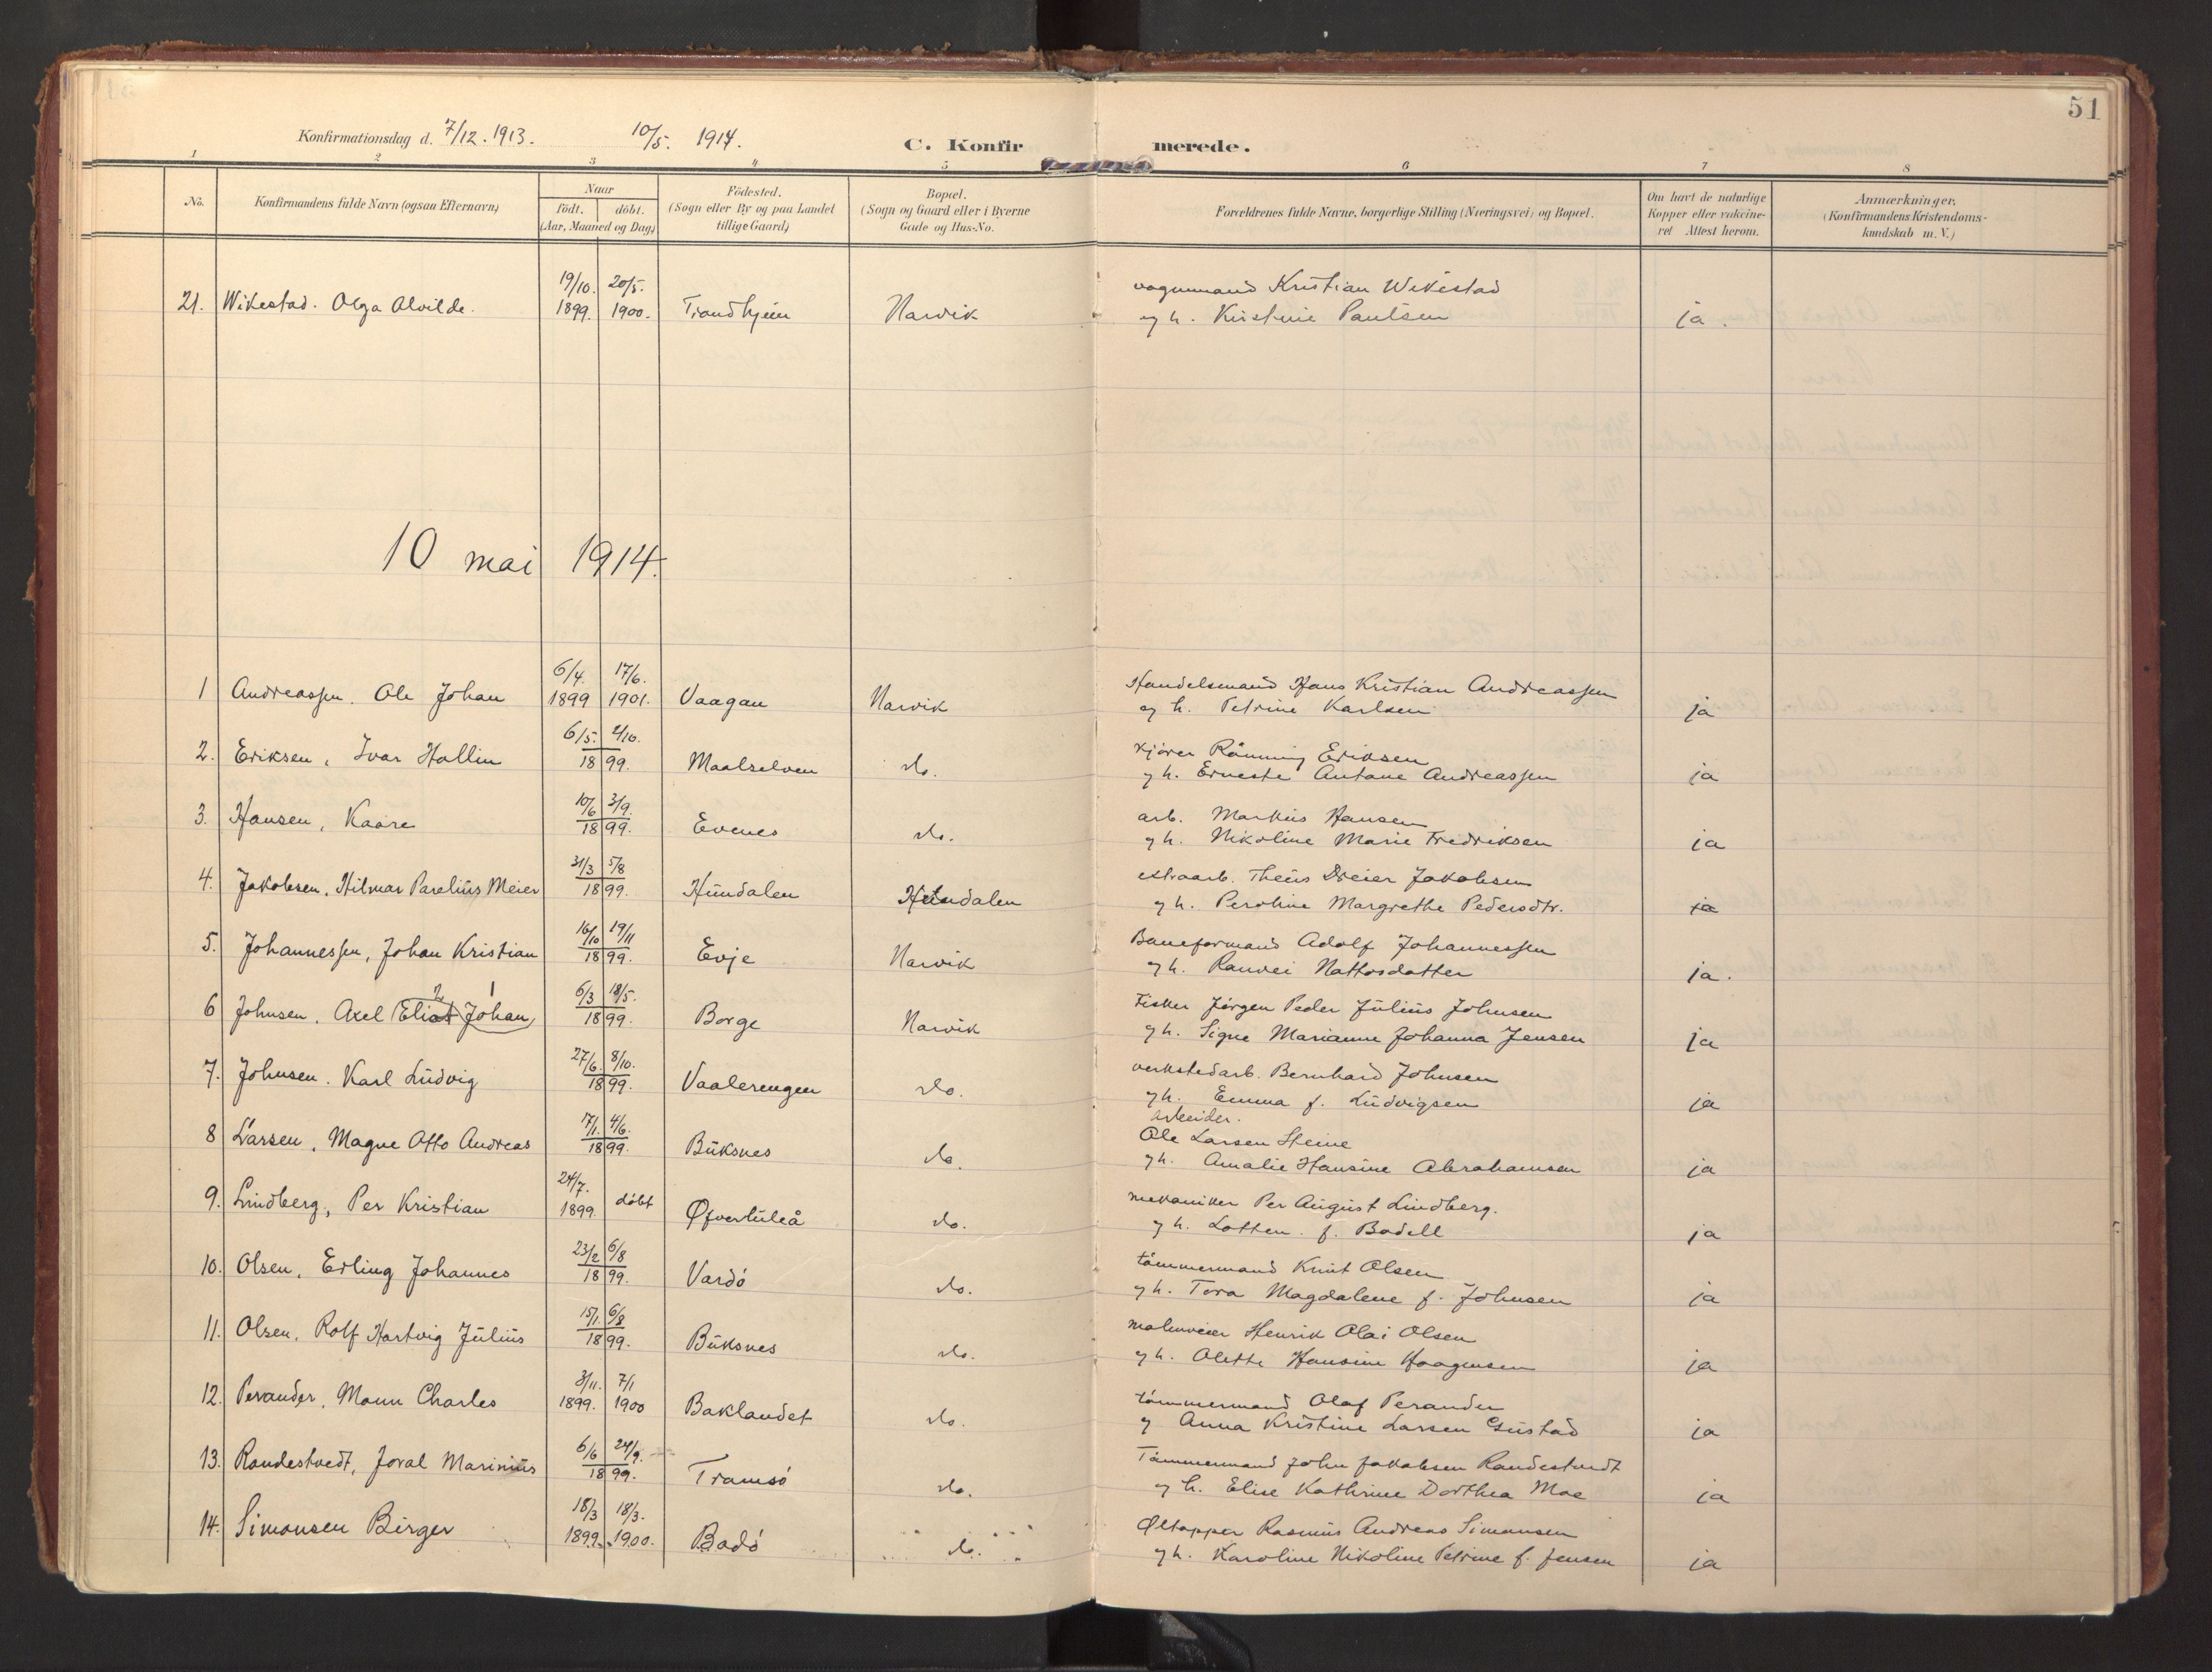 51
Konfirmationsdag d. 7/12. 1913. 10/5. 1914. C. Konfirmerede.
1 2 3 4 5 6 7 8
No. Konfirmandens fulde Navn (ogsaa Efternavn) Naar født. døbt. (Aar, Maaned og Dag) Födested. (Sogn eller By og paa Landet tillige Gaard) Bopæl. (Sogn og Gaard eller i Byerne Gade og Hus-No. Forældrenes fulde Navne, borgerlige Stilling (Næringsvei) og Bopæl. Om havt de naturlige Kopper eller vakcineret Attest herom. Anmærkninger. (Konfirmandens Kristendomskundskab m. V.)
19/10. 20/5. vognmand Kristian Wikestad
21. Wikestad. Olga Alvilde. 1899. 1900. Trondhjem Narvik og h. Kirstine Paulsen ja.
10 mai 1914.
6/4. 17/6. Handelsmand Hans Kristian Andreassen
1 Andreassen. Ole Johan 1899 1901. Vaagan Narvik og h. Petrine Karlsen ja
6/5. 2/10. kjører Rönning Eriksen
2. Eriksen, Ivar Hallin 1899. Maalselven do. og h. Erneste Antone Andreassen ja
10/6 3/9. arb. Markus Hansen
3. Hansen, Kaare 1899. Evenes do. og h. Nikoline Marie Fredriksen ja
31/3 5/8 extraarb. Theüs Dreier Jakobsen
4. Jakobsen. Hilmar Parelius Meier 1899. Hundalen Hundalen og h. Peroline Margrethe Pedersdtr. ja
16/10 19/11 Baneformand Adolf Johannessen
5. Johannessen, Johan Kristian 1899. Evje Narvik og h. Ranvei Nattosdatter ja.
2 1 6/3 18/5. Fisker Jørgen Peder Julius Johnsen
6 Johnsen. Axel Elias Johan, 1899. Borge Narvik og h. Signe Marianne Johanna Jensen ja
27/6. 8/10. verkstedarb. Bernhard Johnsen
7. Johnsen. Karl Ludvig 1899. Vaalerengen do. og h. Emma f. Ludvigsen ja
arbeider.
17/1. 4/6. Ole Larsen Heine
8 Larsen, Magne Otto Andreas 1899. Buksnes do. og h. Amalie Hansine Abrahamsen ja
24/7. mekaniker Per August Lindberg.
9. Lindberg, Per Kristian 1899. döbt Øfverluleå do. og h. Lotten. f. Bodell ja
23/2 6/8 tömmermand Knut Olsen
10. Olsen, Erling Johannes 1899. Vardö do. og h. Tora Magdalene f. Johnsen ja
15/1. 6/8 malmveier Henrik Olai Olsen
11. Olsen, Rolf Hartvig Julius 1899. Buksnes do. og h. Olette Hansine Haagensen ja
3/11. 7/1 tömmermand Olaf Perander
12. Perander, Monn Charles 1899. 1900 Baklandet do. og Anna Kristine Larsen Gustad ja
6/6 24/9. Tömmermand John Jakobsen Randestvedt
13. Randestvedt, Joral Marinius 1899. Tromsö do. og h. Elise Kathrine Dorthea Moe ja
18/3 18/3. Øltapper Rasmus Andreas Simonsen
14. Simonsen Birger 1899. 1900. Bodö do. og h. Karoline Nikoline Petrine f. Jensen ja